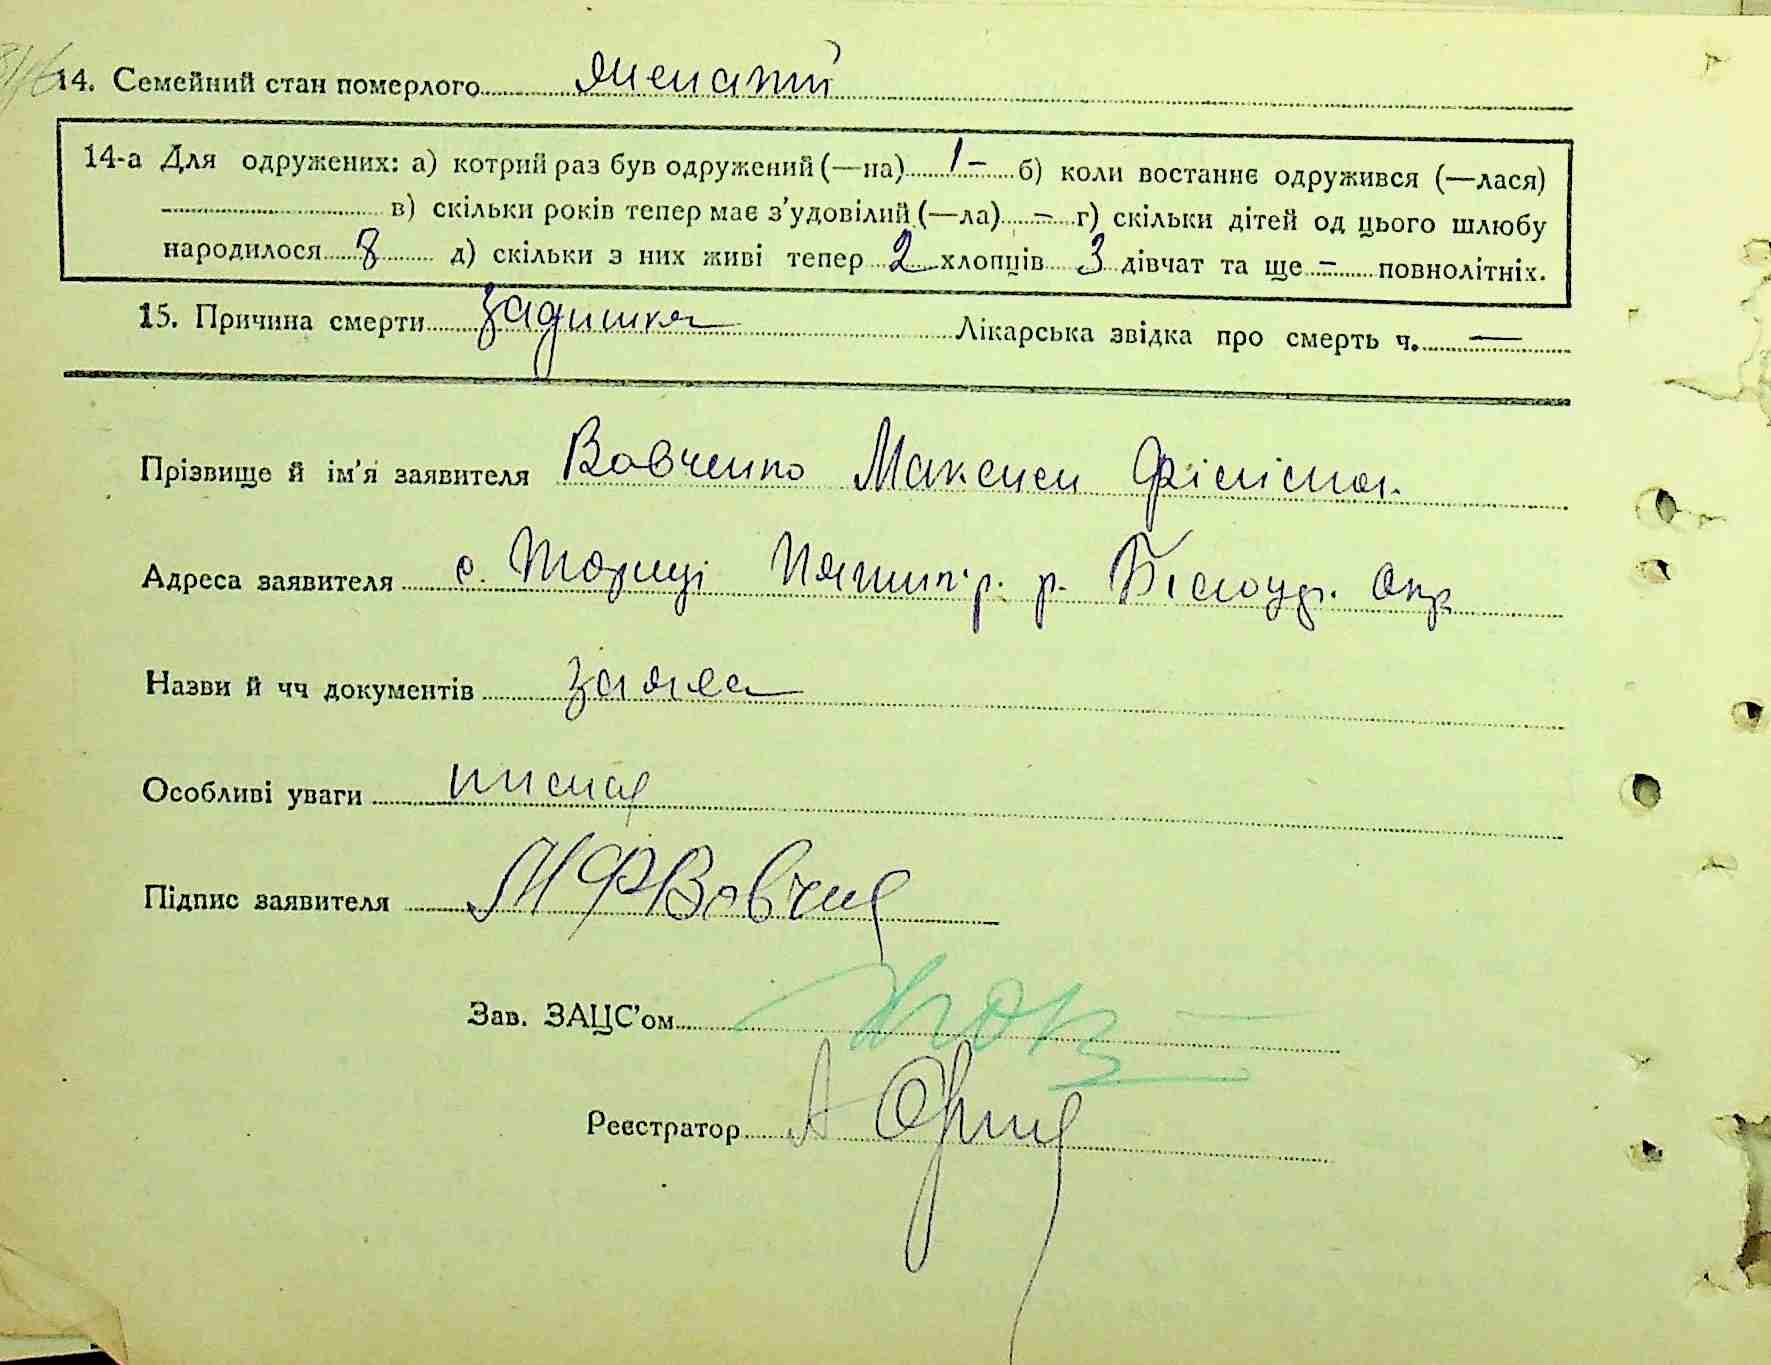 14. Семейний стан померлого женатий
14-а Для одружених: а) котрий раз був одружений (—на) 1 - б) коли востаннє одружився (—лася)
в) скільки років тепер має з'удовілий (—ла) - г) скільки дітей од цього шлюбу
народилося 8 д) скільки з них живі тепер 2 хлопців 3 дівчат та ще - повнолітніх.
15. Причина смерти задишка Лікарська звідка про смерть ч. —
Прізвище й ім'я заявителя Вовченко Максим
Адреса заявителя с. р. Окр
Назви й чч документів заява
Особливі уваги
Підпис заявителя МФВовчен
Зав. ЗАЦС'ом
Реєстратор А